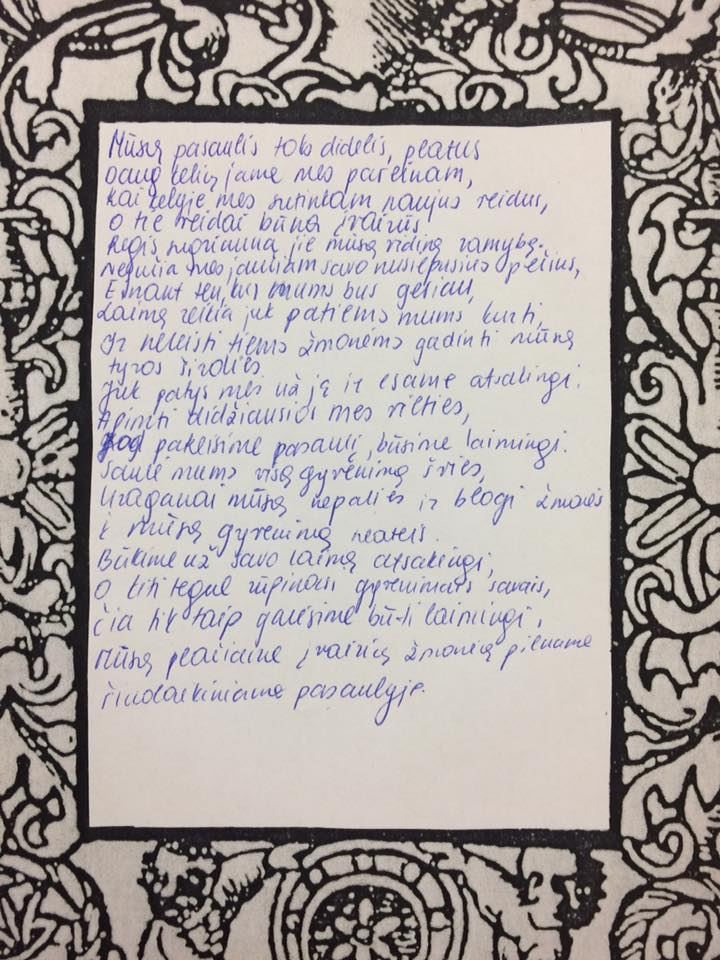 Mūsų pasaulis toks didelis, platus
Daug kelių jame mes pareinam,
Kai kelyje mes sutinkam naujus veidus,
O tie veidai būna įvairūs.
Regis sugriauna jie mūsų vidinę ramybę.
mes jaučiam savo nusilpusius pečius,
Einant ten, kur mums bus geriau,
Laimę reikia juk patiems mums kurti,
Ir neleisti tiems žmonėms gadinti mūsų
tyros širdies.
Juk patys mes už ją ir esame atsakingi.
Apimti didžiausios mes vilties,
kad pakeisime pasaulį, būsime laimingi.
Saulė mums visą gyvenimą švies,
Uraganai mūsų nepalies ir blogi žmonės
į mūsų gyvenimą neateis.
Būkime už savo laimę atsakingi,
O kiti tegul rūpinasi gyvenimais savais,
Čia tik taip galėsime būti laimingi,
Mūsų plačiame įvairių žmonių pilname
šiuolaikiniame pasaulyje.